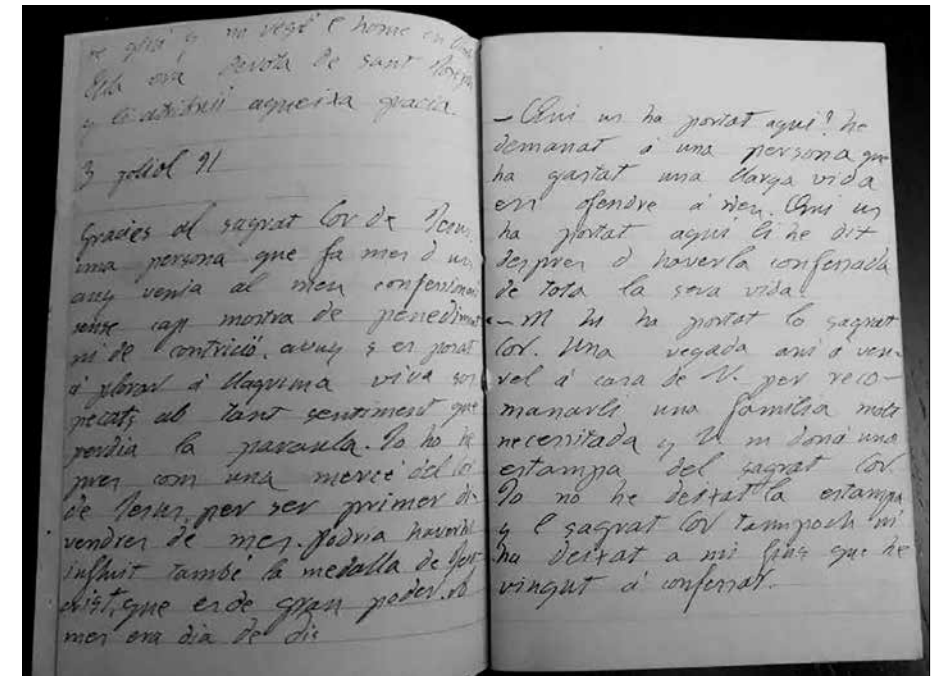 se giri y no vegé l home en lloch
Ella era devota de sant Joseph
y li atribuí aqueixa gracia.
3 joliol 91
Gracies al sagrat Cor de Jesus
una persona que fa mes d un
any venia al meu confessionari
sense cap mostra de penediment
ni de contrició, avuy s es posat
á plorar á llagrima viva sos
pecats ab tant sentiment que
perdia la paraula. Jo ho he
pres com una mercé del Cor
de Jesus per ser primer di-
vendres de mes. Podria haverhi
influit també la medalla de Jesu-
crist, que es de gran poder.
mes era dia de dis
– Qui us ha portat aqui? he
demanat á una persona que
ha gastat una llarga vida
en ofendre á Deu. Qui us
ha portat aqui li he dit
despres d haverla confessada
de tota la seva vida?
– M hi ha portat lo sagrat
Cor. Una vegada aní á veu-
rel á casa de V. per reco-
manarli una familia molt
necessitada y V. m doná una
estampa del sagrat Cor.
Jo no he deixat la estampa
y l sagrat Cor tampoch m
ha deixat a mi fins que he
vingut á confessar.